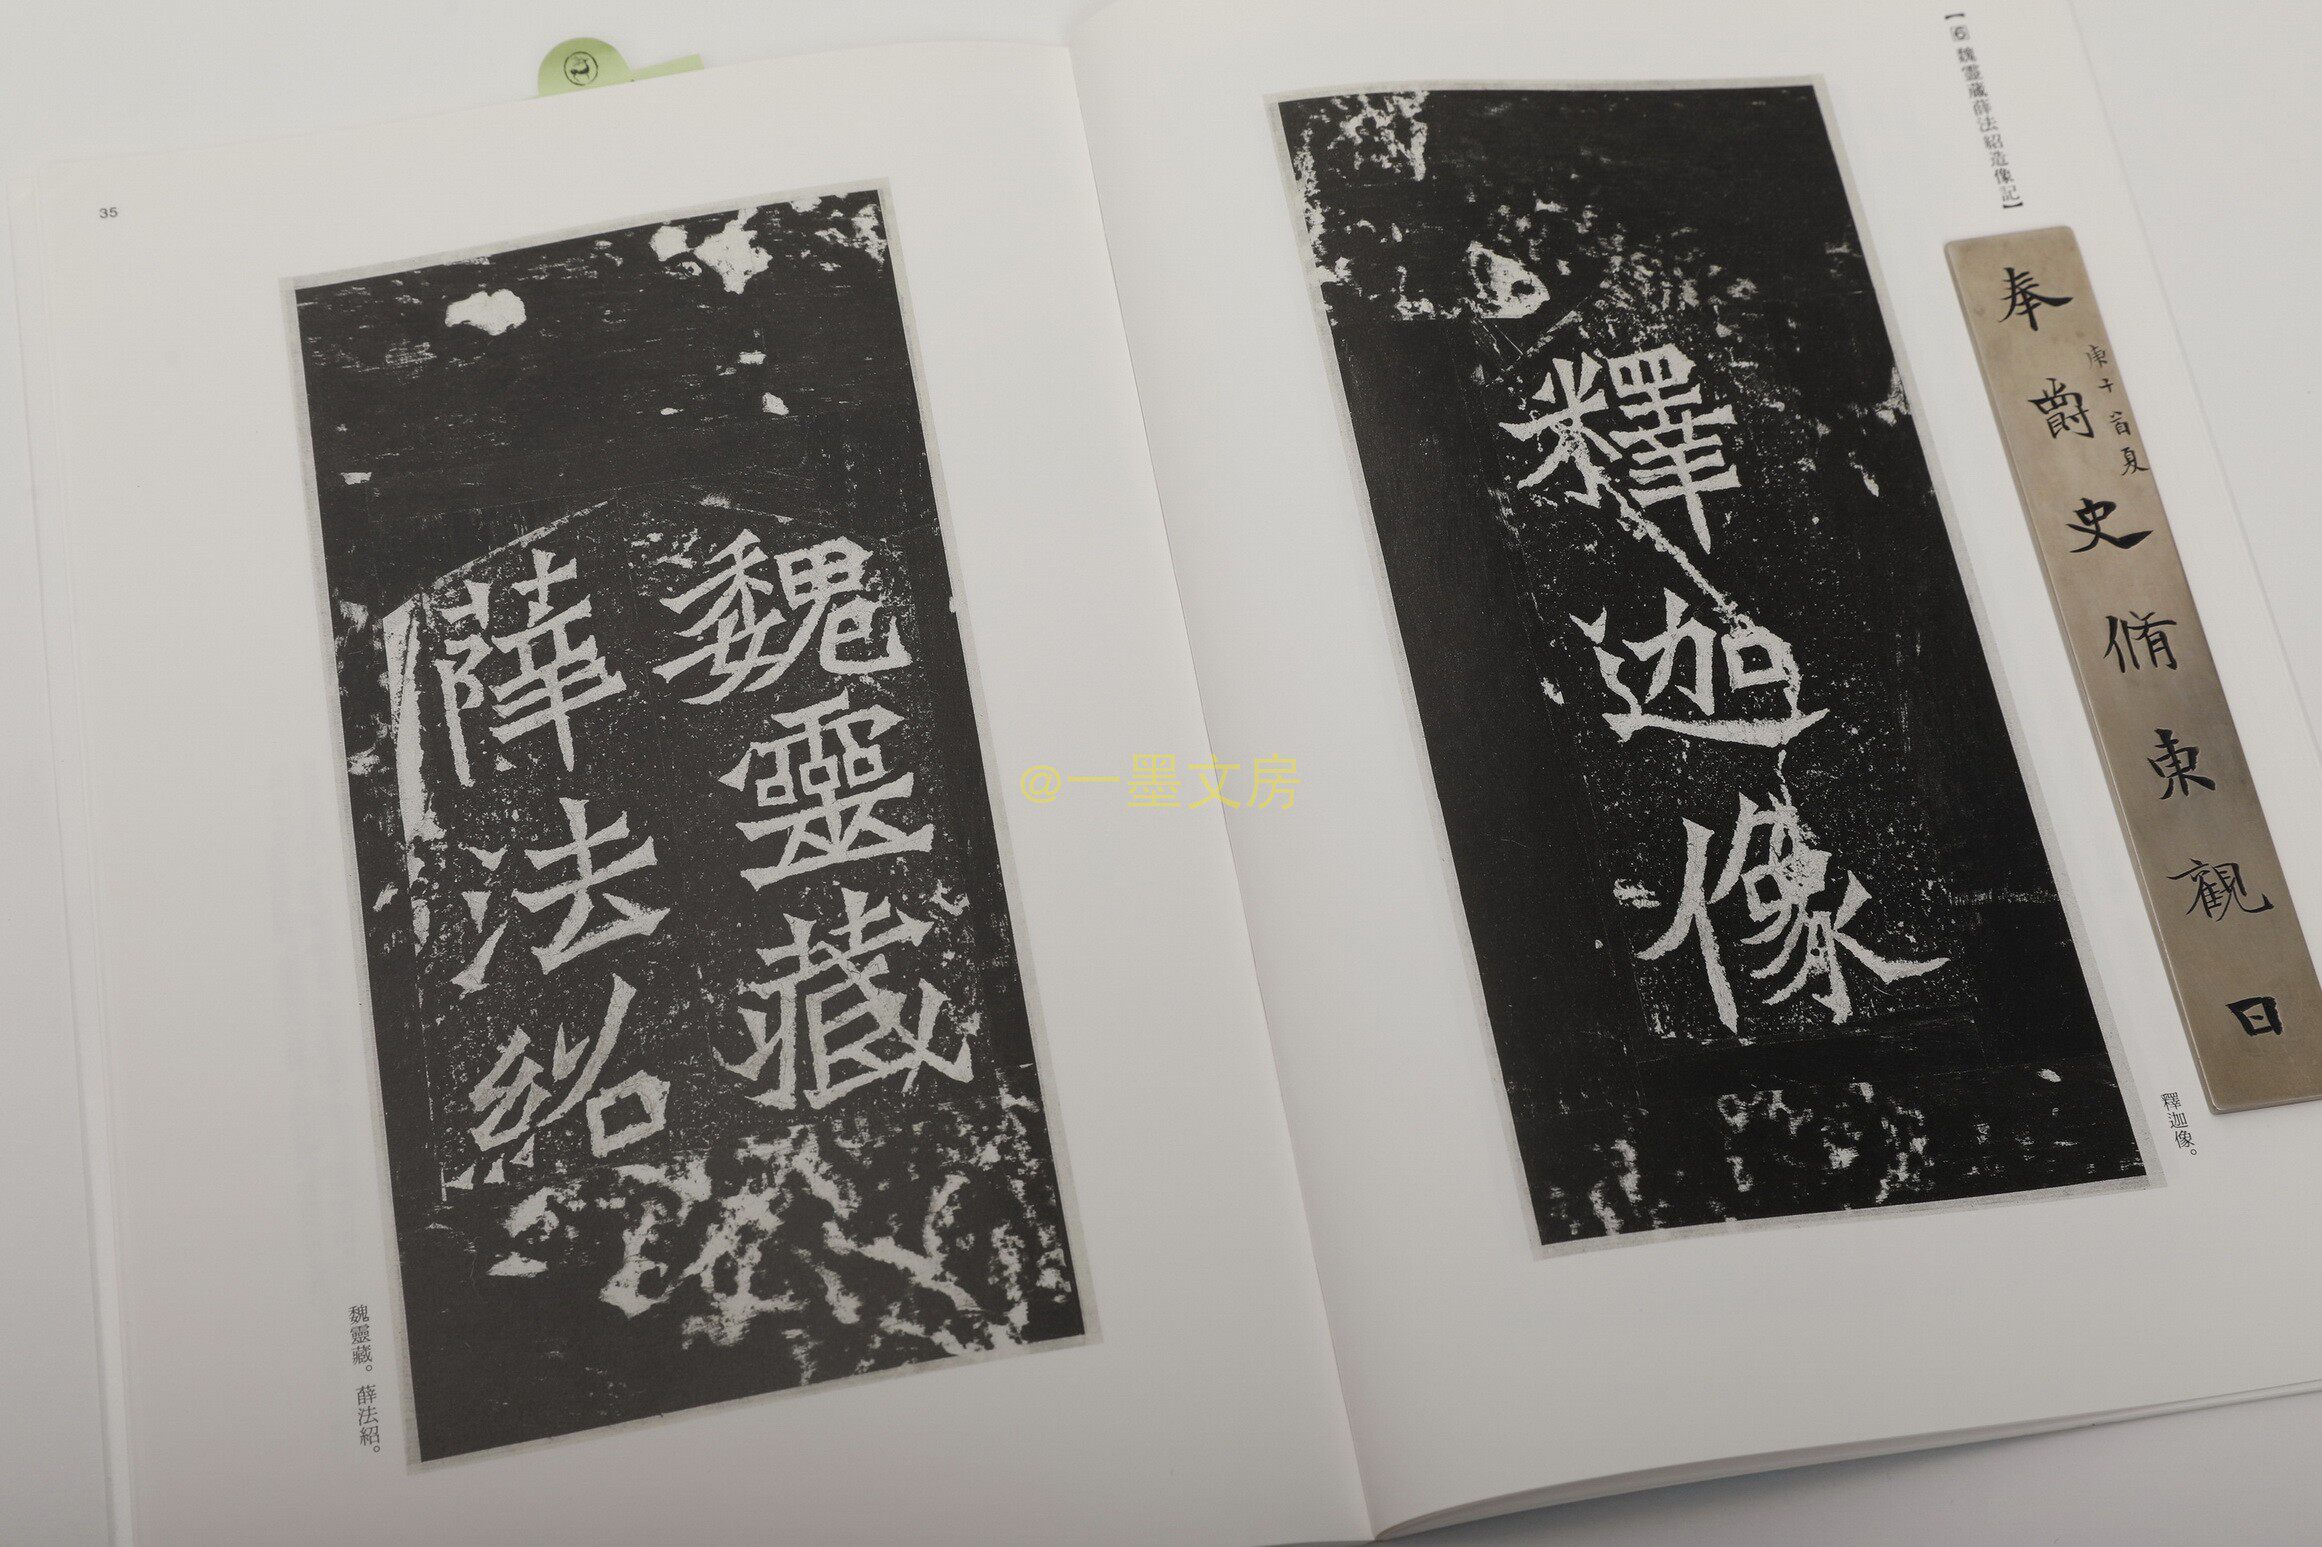 【6 魏靈藏薛法紹造像記】
釋迦像
釋迦像。
奉爵史脩東觀曰
庚子首夏
魏靈藏
薛法紹
魏靈藏。薛法紹。
35
@一墨文房